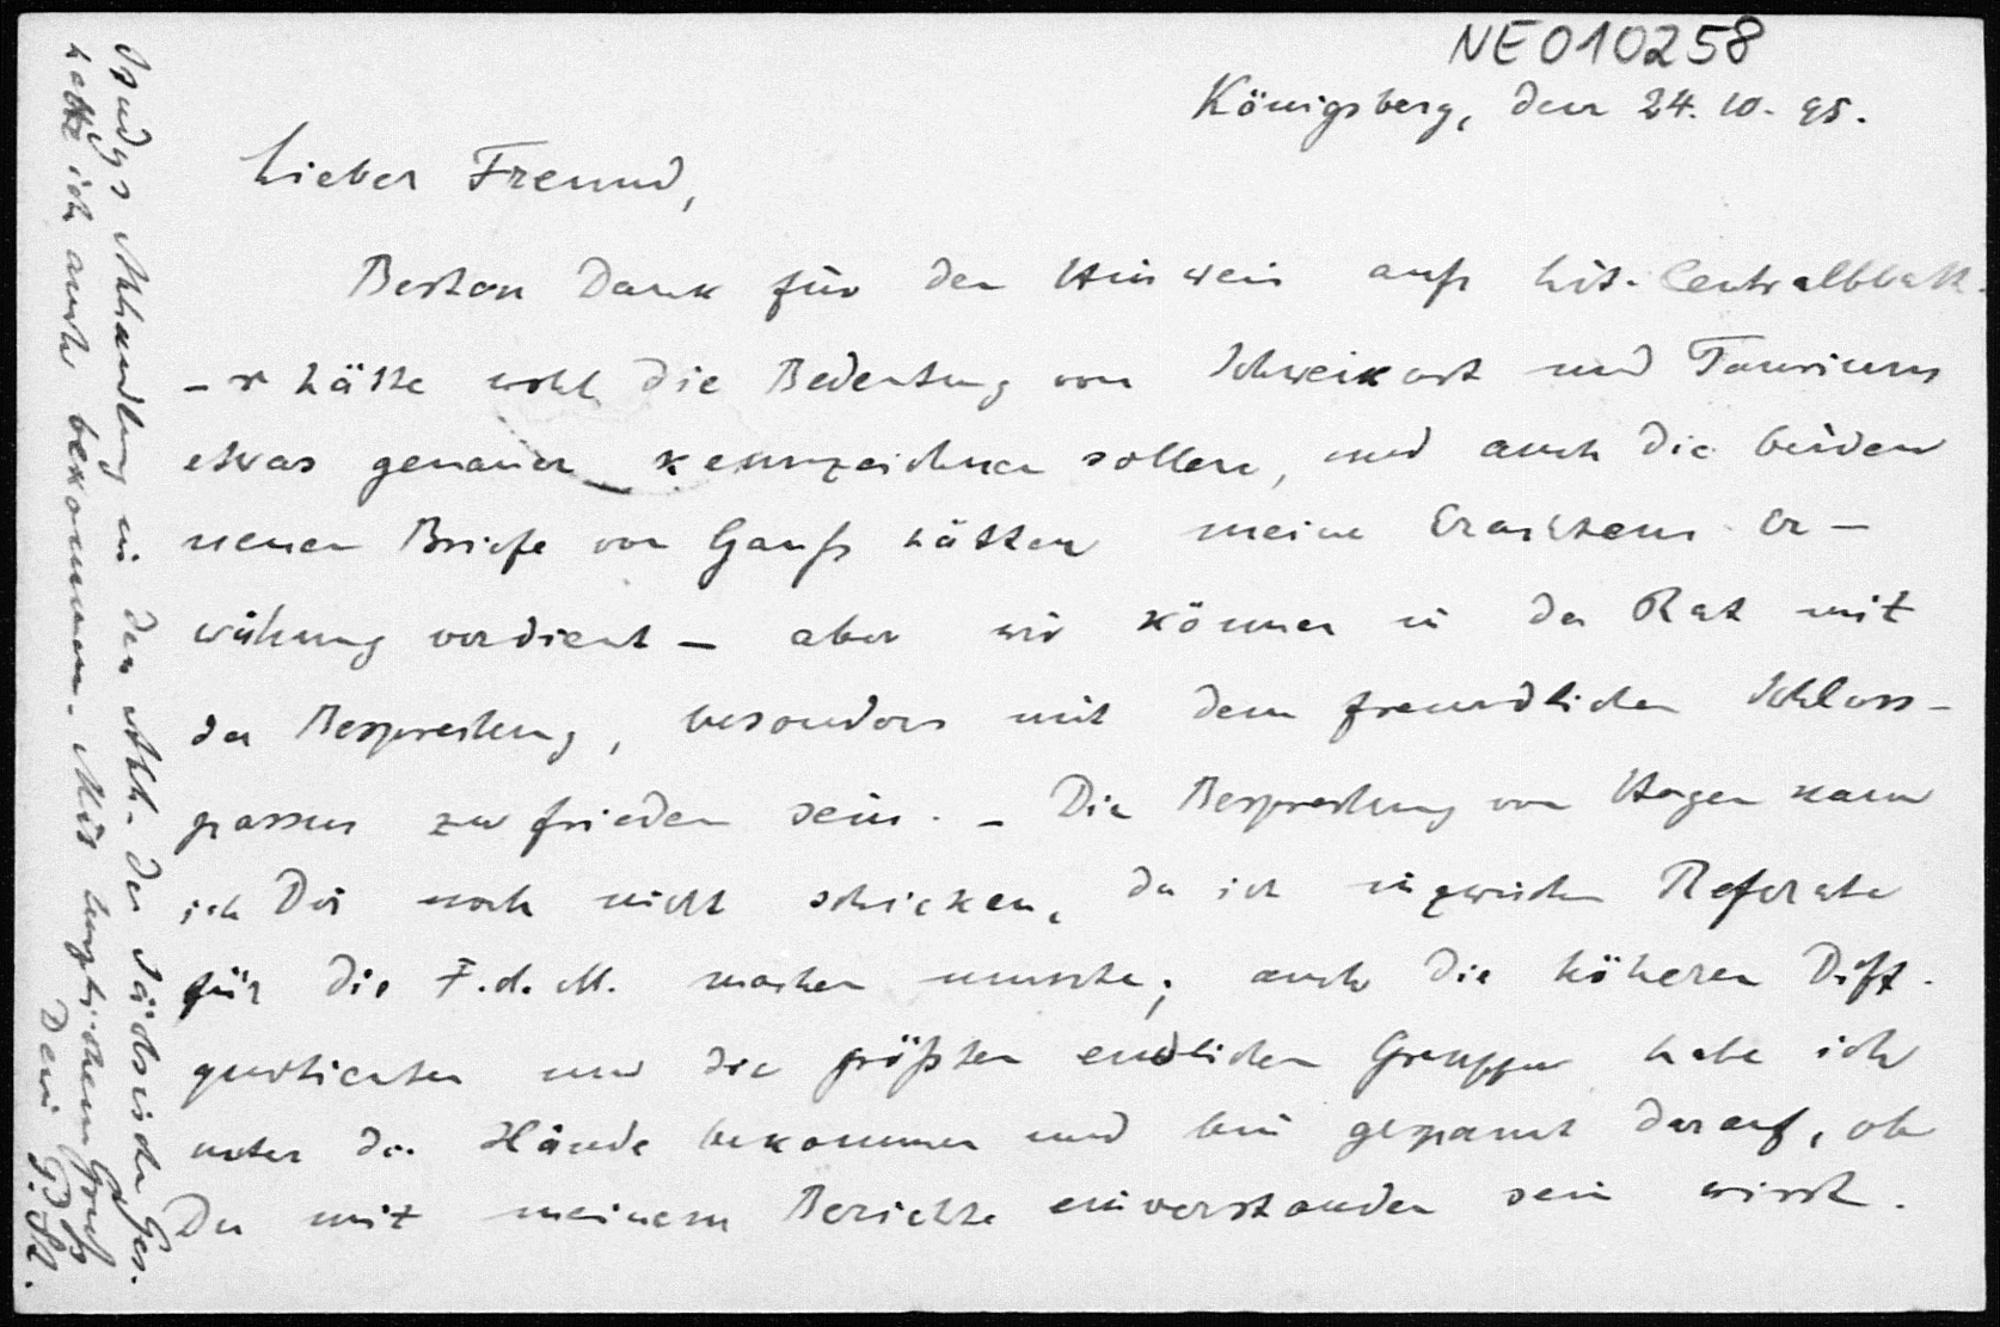 NE010258
Königsberg, den 24. 10. 95.
Lieber Freund,
Besten Dank für den Hinweis aufs Lit. Centralblatt.
-r hätte wohl die Bedeutung von Schweikart und Taurinus
etwas genauer kennzeichnen sollen, und auch die beiden
neuen Briefe von Gauß hätten meines Erachtens Er-
wähnung verdient – aber wir können in der Tat mit
der Besprechung, besonders mit dem freundlichen Schluss-
passus zufrieden sein. – Die Besprechung von Hagen kann
ich Dir noch nicht schicken, da ich inzwischen Referate
für die F. d. M. machen musste; auch die höheren Diff.
quotienten und die größten endlichen Gruppen habe ich
unter die Hände bekommen und bin gespannt darauf, ob
Du mit meinem Berichte einverstanden sein wirst.
Abhandlung in den Abh. der Sächsischen Ges.
hatte ich auch bekommen. – Mit herzlichem Gruß
Dein P. St.